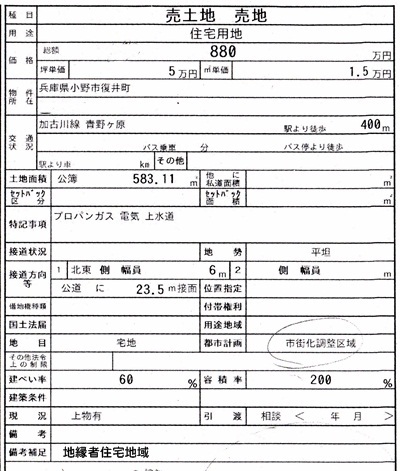 種目 売土地 売地
用途 住宅用地
価格 総額 880 万円
坪単価 5万円 ㎡単価 1.5万円
物件所在 兵庫県小野市復井町
交通状況 加古川線 青野ヶ原 駅より徒歩 400m
バス乗車 分 バス停より徒歩
駅より車 km その他
土地面積 公簿 583.11㎡ 他に私道面積 ㎡
セットバック区分 セットバック面積 ㎡
特記事項 プロパンガス 電気 上水道
接道状況 地勢 平坦
接道方向等 1 北東 側 幅員 6m 2 側 幅員 m
公道 に 23.5m接面 位置指定
借地権種類 付帯権利
国土法届 用途地域
地目 宅地 都市計画 市街化調整区域
その他法令上の制限
建ぺい率 60 % 容積率 200 %
建築条件
現況 上物有 引渡 相談 < 年 月 >
備考
備考補足 地縁者住宅地域